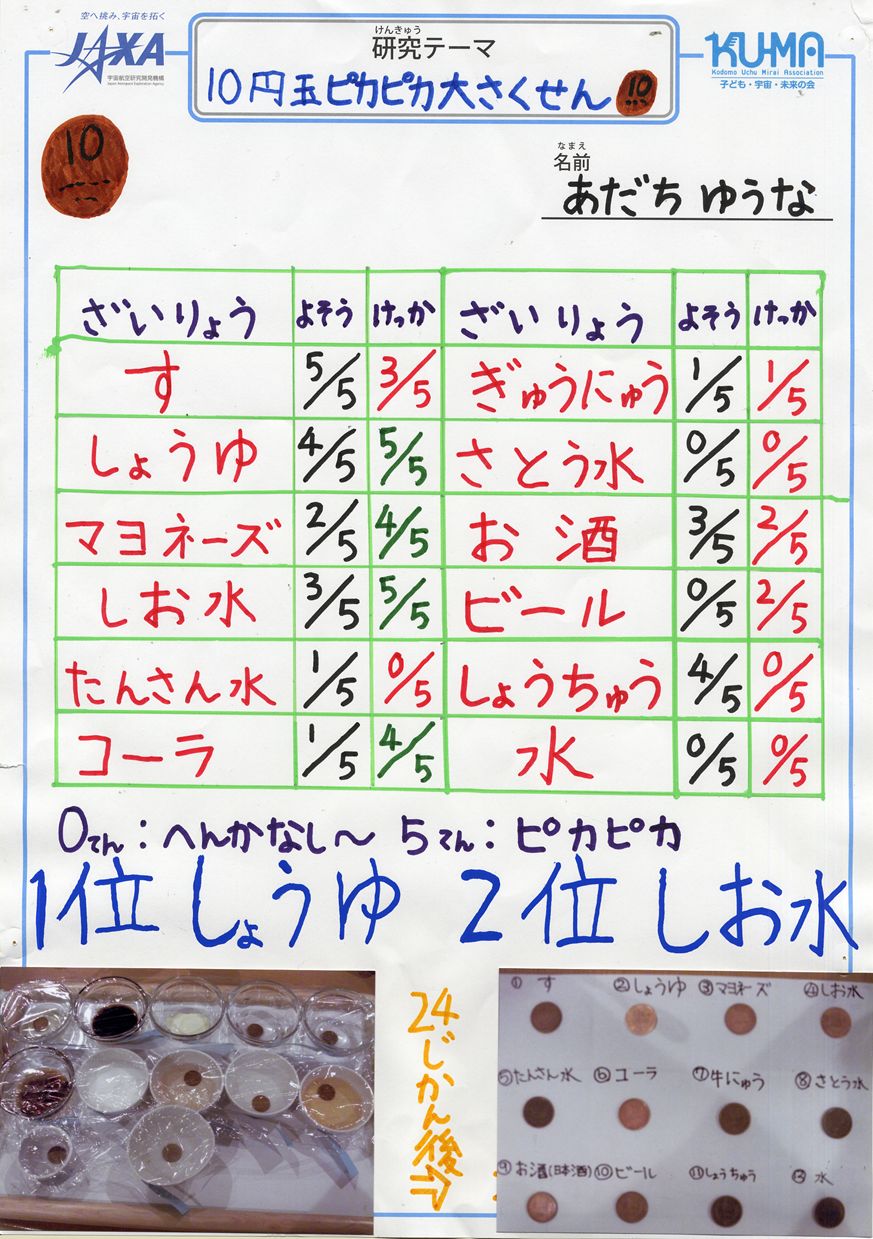 空へ挑み、宇宙を拓く
JAXA
宇宙航空研究開発機構
Japan Aerospace Exploration Agency
けんきゅう
研究テーマ
10円玉ピカピカ大さくせん
10
KU-MA
Kodomo Uchu Mirai Association
子ども・宇宙・未来の会
10
なまえ
名前
あだち ゆうな
ざいりょう よそう けっか ざいりょう よそう けっか
す 5/5 3/5 ぎゅうにゅう 1/5 1/5
しょうゆ 4/5 5/5 さとう水 0/5 0/5
マヨネーズ 2/5 4/5 お酒 3/5 2/5
しお水 3/5 5/5 ビール 0/5 2/5
たんさん水 1/5 0/5 しょうちゅう 4/5 0/5
コーラ 1/5 4/5 水 0/5 0/5
0てん:へんかなし〜 5てん:ピカピカ
1位 しょうゆ 2位 しお水
24じかん後⇒
①す ②しょうゆ ③マヨネーズ ④しお水
⑤たんさん水 ⑥コーラ ⑦牛にゅう ⑧さとう水
⑨お酒(日本酒) ⑩ビール ⑪しょうちゅう ⑫水